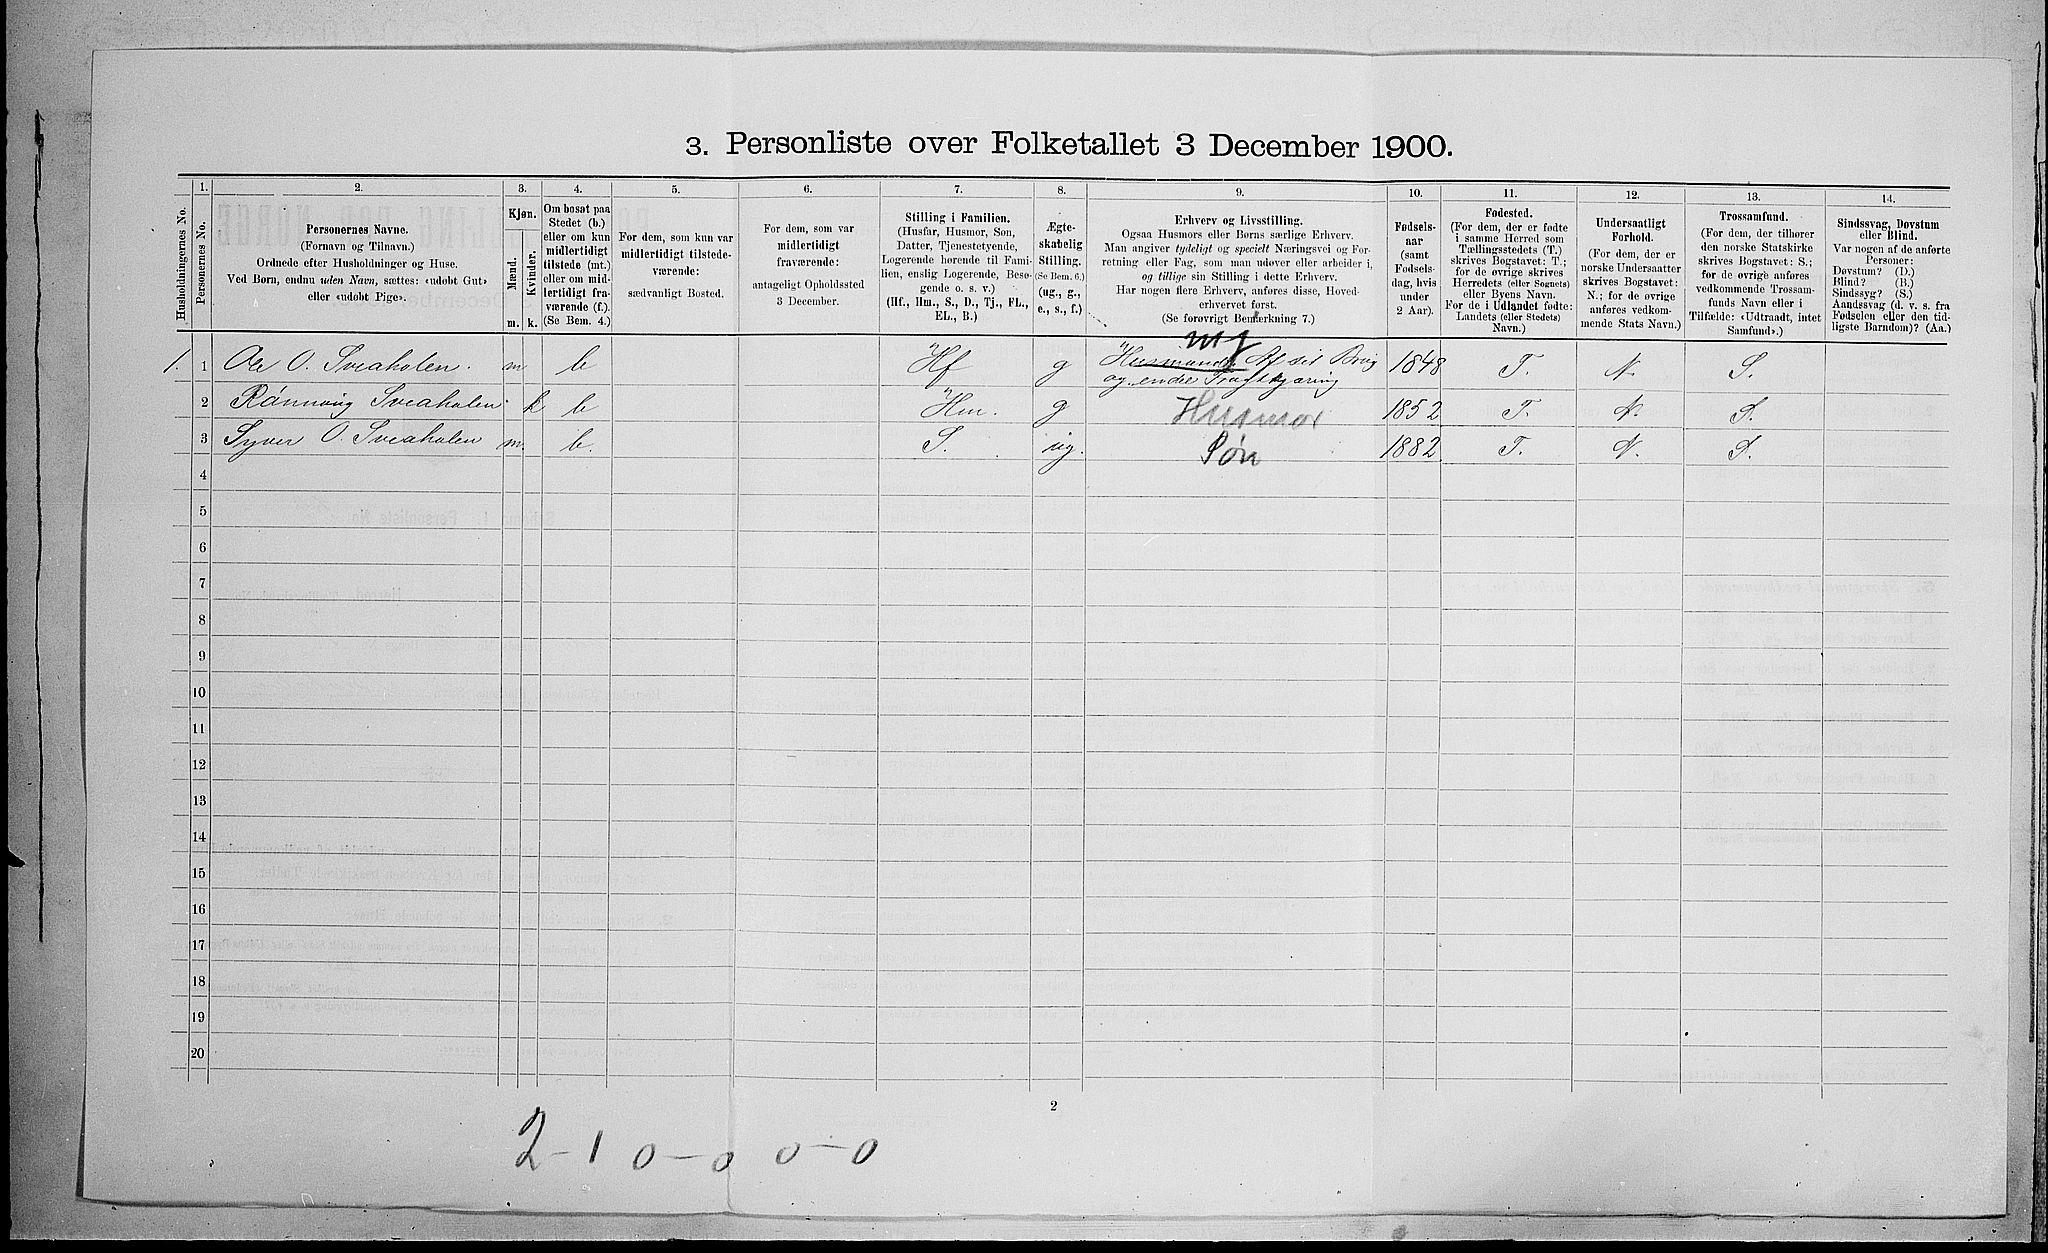 3. Personliste over Folketallet 3 December 1900.
1. 2. 3. 4. 5. 6. 7. 8. 9. 10. 11. 12. 13. 14.
Husholdningernes No.
Personernes No.
Personernes Navne.
(Fornavn og Tilnavn.)
Ordnede efter Husholdninger og Huse.
Ved Børn, endnu uden Navn, sættes: «udøbt Gut»
eller «udøbt Pige».
Kjøn.
Mænd.
Kvinder.
m. k.
Om bosat paa
Stedet (b.)
eller om kun
midlertidigt
tilstede (mt.)
eller om mid-
lertidigt fra-
værende (f.)
(Se Bem. 4.)
For dem, som kun var
midlertidigt tilstede-
værende:
sædvanligt Bosted.
For dem, som var
midlertidigt
fraværende:
antageligt Opholdssted
3 December.
Stilling i Familien.
(Husfar, Husmor, Søn,
Datter, Tjenestetyende,
Logerende hørende til Fami-
lien, enslig Logerende, Besø-
gende o. s. v.)
(Hf., Hm., S., D., Tj., FL.,
EL., B.)
Ægte-
skabelig
Stilling.
(Se Bem. 6.)
(ug., g.,
e., s., f.)
Erhverv og Livsstilling.
Ogsaa Husmors eller Børns særlige Erhverv.
Man angiver tydeligt og specielt Næringsvei og For-
retning eller Fag, som man udøver eller arbeider i,
og tillige sin Stilling i dette Erhverv.
Har nogen flere Erhverv, anføres disse, Hoved-
erhvervet først.
(Se forøvrigt Bemærkning 7.)
Fødsels-
aar
(samt
Fødsels-
dag, hvis
under
2 Aar).
Fødested.
(For dem, der er fødte
i samme Herred som
Tællingsstedets (T.)
skrives Bogstavet: T.;
for de øvrige skrives
Herredets (eller Sognets)
eller Byens Navn.
For de i Udlandet fødte:
Landets (eller Stedets)
Navn.)
Undersaatligt
Forhold.
(For dem, der er
norske Undersaatter
skrives Bogstavet:
N.; for de øvrige
anføres vedkom-
mende Stats Navn.)
Trossamfund.
(For dem, der tilhører
den norske Statskirke
skrives Bogstavet: S.;
for de øvrige anføres
vedkommende Trossam-
funds Navn eller i
Tilfælde: «Udtraadt, intet
Samfund».)
Sindssvag, Døvstum
eller Blind.
Var nogen af de anførte
Personer:
Døvstum? (D.)
Blind? (B.)
Sindssyg? (S.)
Aandssvag (d. v. s. fra
Fødselen eller den tid-
ligste Barndom)? (Aa.)
1. 1 Ole O. Sveaholen. m b Hf g Husmand 1848 T. N. S.
2 Rønnoug Sveaholen. k b Hm. g Husmor 1852 T. N. S.
3 Syver O. Sveaholen m. b. S. ug. Søn 1882 T. N. S.
4
5
6
7
8
9
10
11
12
13
14
15
16
17
18
19
20
2
2-1 0-0 0-0